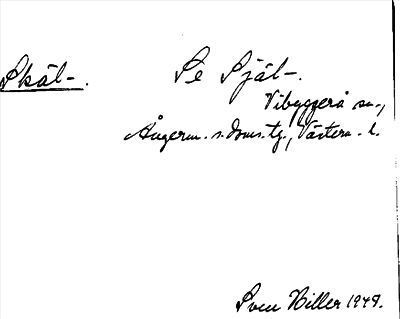 Skäl-. Se Själ-.
Vibyggerå sn.,
Ångerm. s. doms. tg., Västern. l.
Sven Hiller 1949.